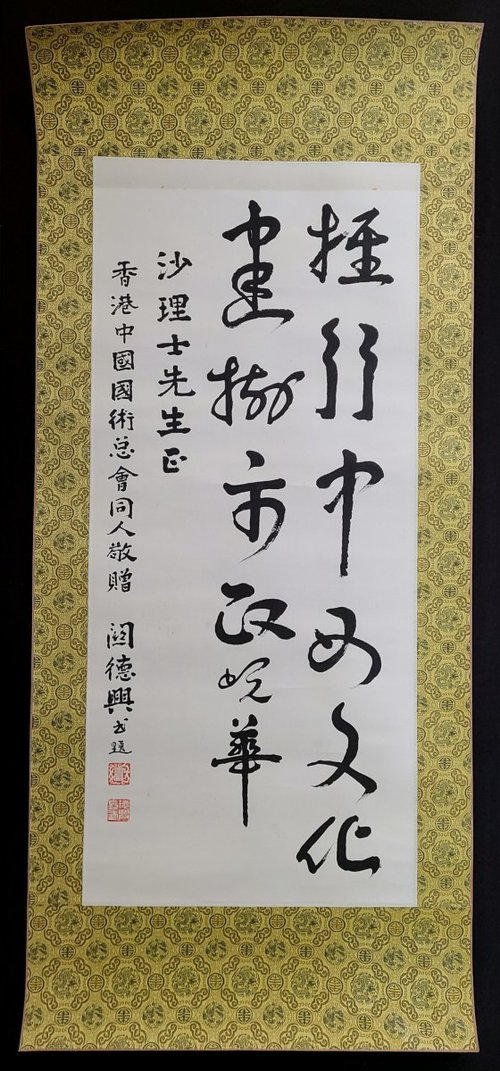 推行中西文化
建樹市政華
沙理士先生正
香港中國國術总會同人敬贈 關德興书題